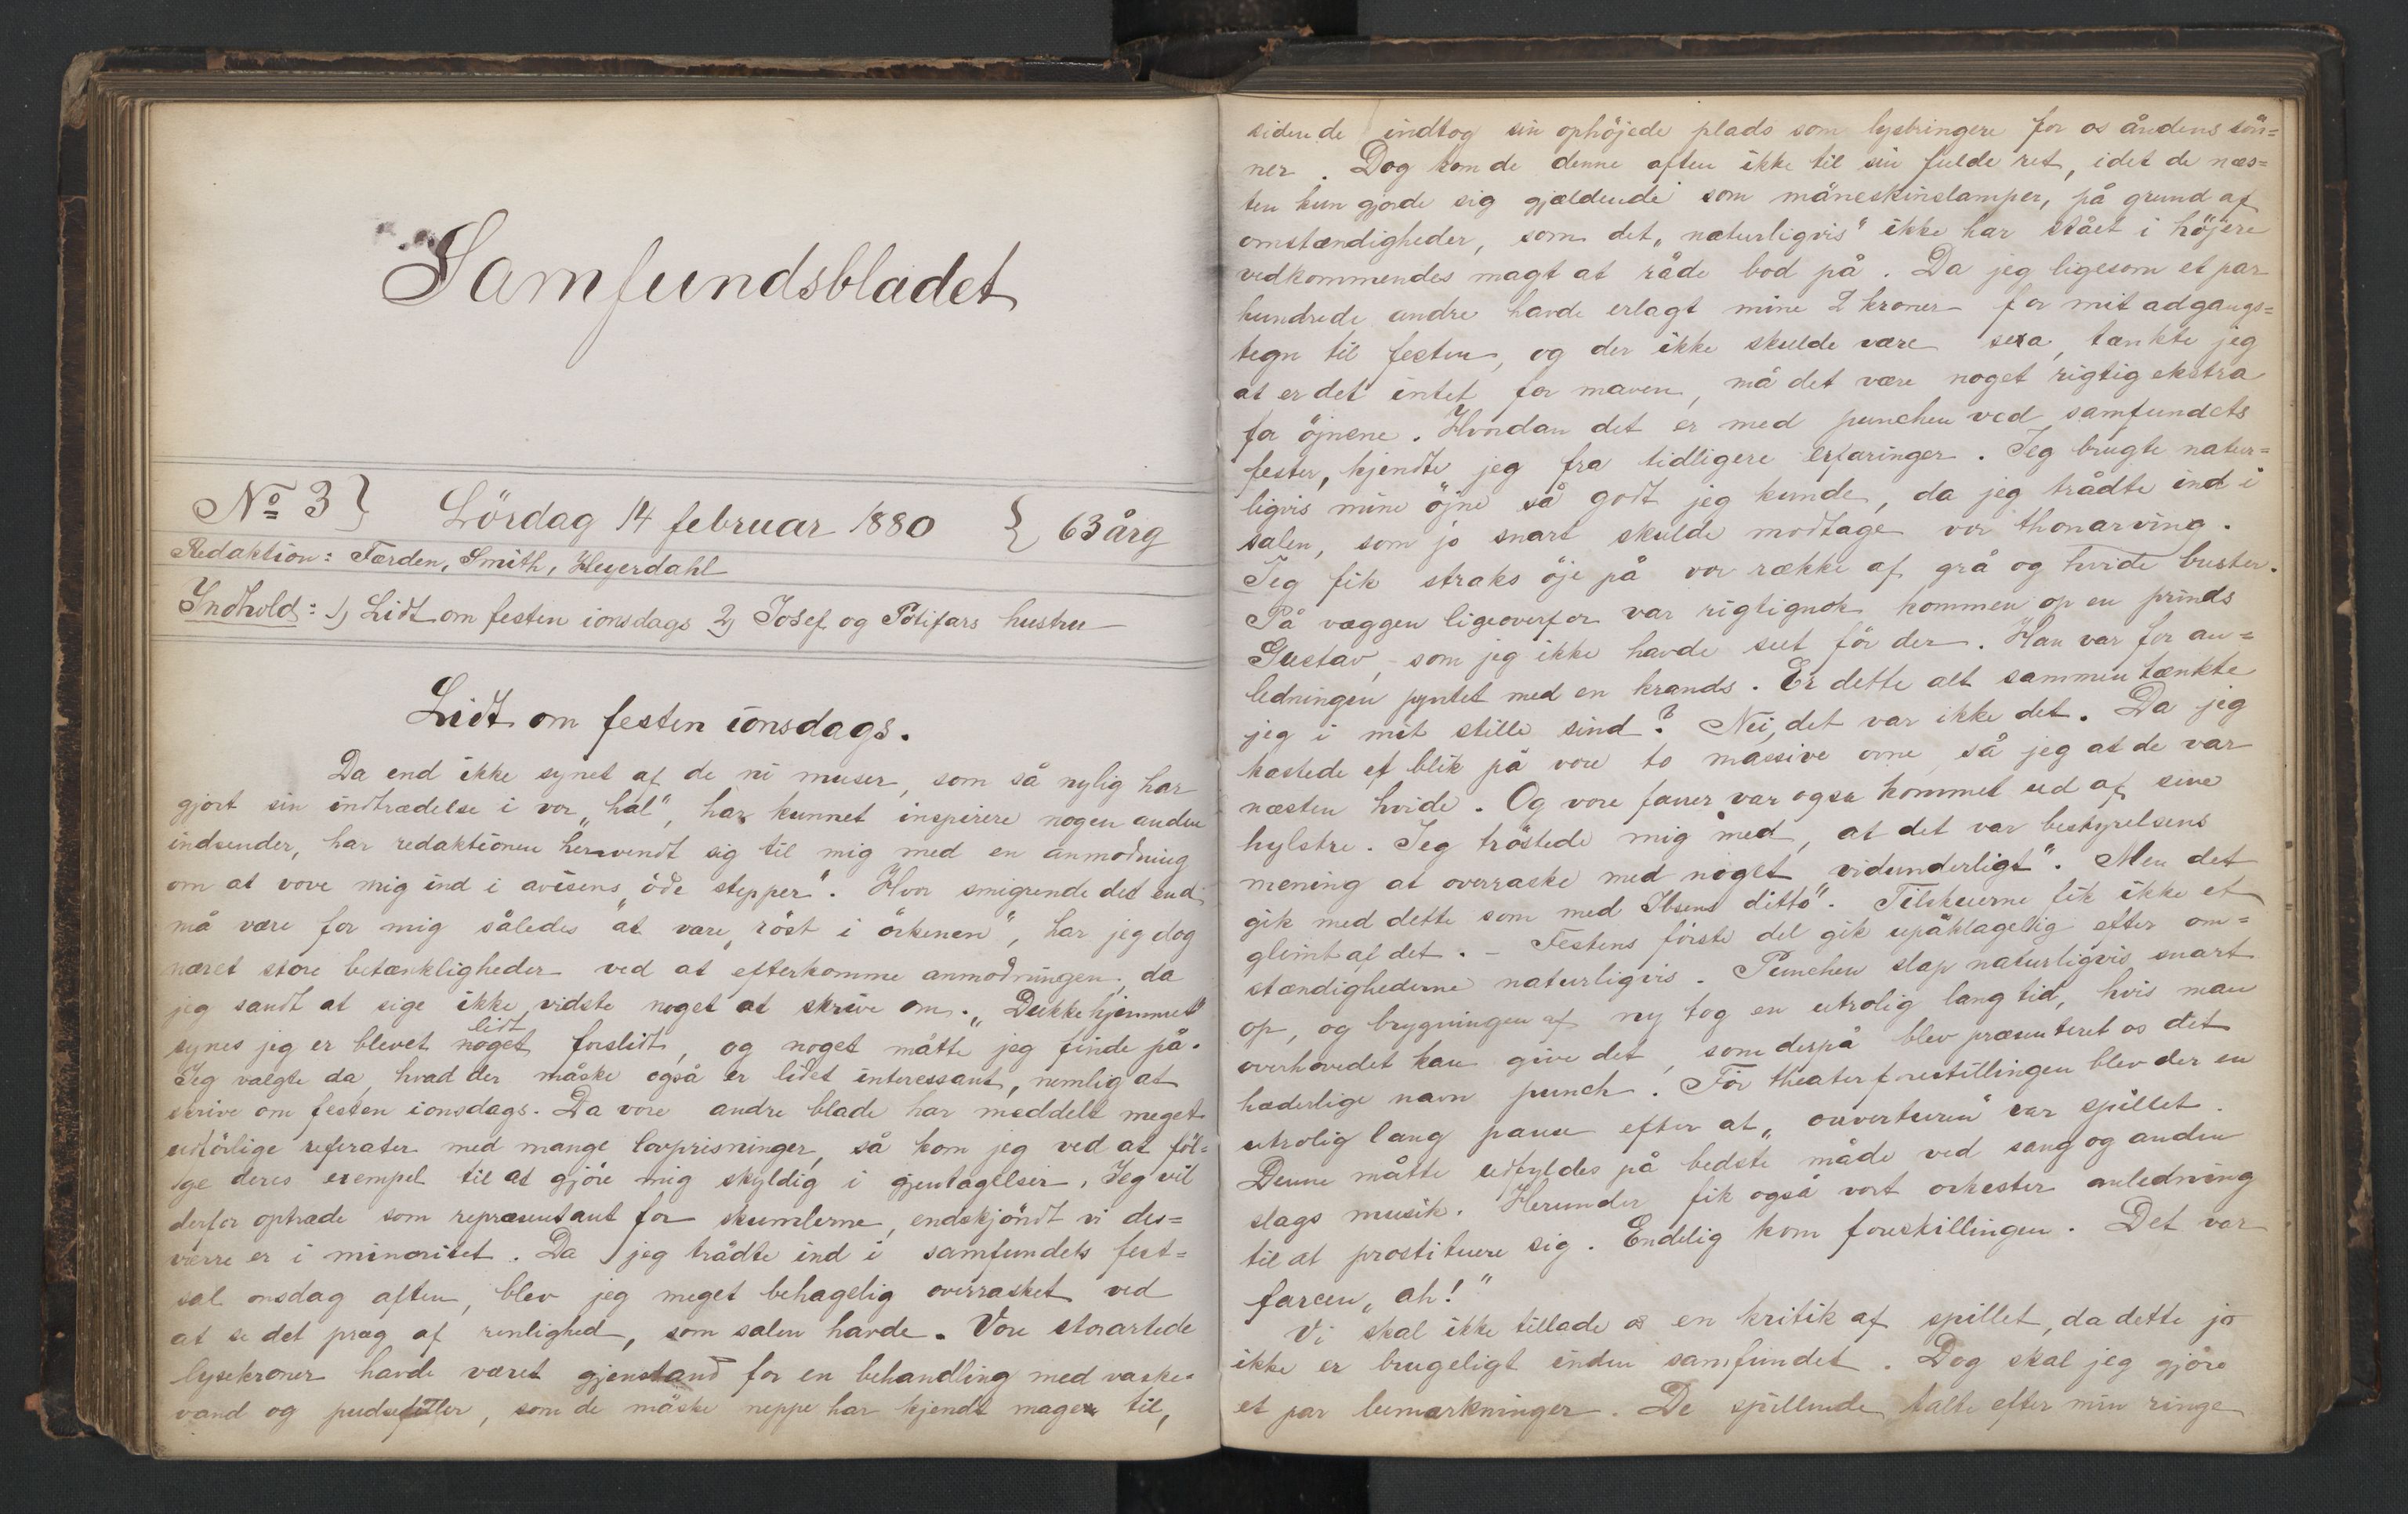 Samfundsbladet
No 3} Lördag 14 februar 1880 { 63 årg
Redaktion: Færden, Smith, Heyerdahl
Indhold: 1) Lidt om festen ionsdags 2) Josef og Potifars hustru
Lidt om festen ionsdags.
Da end ikke synet af de ni muser, som så nylig har
gjort sin indtrædelse i vor „hal“, har kunnet inspirere nogen anden
indsender, har redaktionen henvendt sig til mig med en anmodning
om at vove mig ind i avisens „öde stepper“. Hvor smigrende det end
må være for mig således at være „röst i örkenen“, har jeg dog
næret store betænkligheder ved at efterkomme anmodningen, da
jeg sandt at sige ikke vidste noget at skrive om. „Dukkehjemmet“
synes jeg er blevet noget lidt forslidt, og noget måtte jeg finde på.
Jeg valgte da, hvad der måske også er lidet interessant, nemlig at
skrive om festen ionsdags. Da vore andre blade har meddelt meget
udförlige referater med mange lovprisninger, så kom jeg ved at föl=
ge deres exempel til at gjöre mig skyldig i gjentagelser. Jeg vil
derfor optræde som repræsentant for skumlerne, endskjöndt vi des=
værre er i minoritet. Da jeg trådte ind i samfundets fest=
sal onsdag aften, blev jeg meget behagelig overrasket ved
at se det præg af renlighed, som salen havde. Vore storartede
lysekroner havde været gjenstand for en behandling med vaske=
vand og pudsefiller, som de måske neppe har kjendt magen til,
siden de indtog sin ophöjede plads som lysbringere for os åndens sön=
ner. Dog kom de denne aften ikke til sin fulde ret, idet de næs=
ten kun gjorde sig gjældende som måneskinslamper, på grund af
omstændigheder, som det „naturligvis“ ikke har stået i höjere
vedkommendes magt at råde bod på. Da jeg ligesom et par
hundrede andre havde erlagt mine 2 kroner for mit adgangs=
tegn til festen, og der ikke skulde være sexa, tænkte jeg
at er det intet for maven, må det være noget rigtig ekstra
for öjnene. Hvordan det er med punchen ved samfundets
fester, kjendte jeg fra tidligere erfaringer. Jeg brugte natur=
ligvis mine öjne så godt jeg kunde, da jeg trådte ind i
salen, som jo snart skulde modtage vor thonarving.
Jeg fik straks öje på vor række af grå og hvide buster.
På væggen ligeoverfor var rigtignok kommen op en prinds
Gustav, som jeg ikke havde seet för der. Han var for an=
ledningen pyntet med en krands. Er dette alt sammen tænkte
jeg i mit stille sind? Nei, det var ikke det. Da jeg
kastede et blik på vore to massive ovne, så jeg at de var
næsten hvide. Og vore faner var også kommet ud af sine
hylstre. Jeg tröstede mig med, at det var bestyrelsens
mening at overraske med noget „vidunderligt“. Men det
gik med dette som med Ibsens „ditto“. Tilskuerne fik ikke et
glimt af det. – Festens förste del gik upåklagelig efter om=
stændighederne naturligvis. Punchen slap naturligvis snart
op, og brygningen af ny tog en utrolig lang tid, hvis man
overhovedet kan give det, som derpå blev præsenteret os det
hæderlige navn punch. För theaterforestillingen blev der en
utrolig lang pause efter at „ouverturen“ var spillet.
Denne måtte udfyldes på bedste måde ved sang og anden
slags musik. Herunder fik også vort orkester anledning
til at prostituere sig. Endelig kom forestillingen. Det var
farcen „ah!“
Vi skal ikke tillade os en kritik af spillet, da dette jo
ikke er brugeligt inden samfundet. Dog skal jeg gjöre
et par bemærkninger. De spillende talte efter min ringe